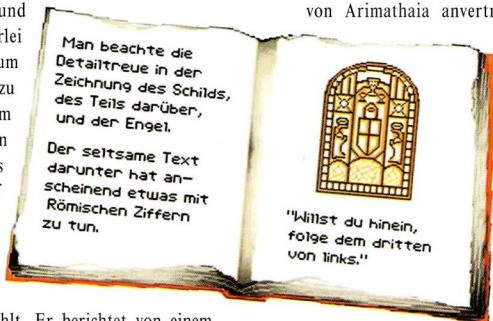 und
von Arimathaia
rlei
um
zu
m
n
s
Man beachte die
Detailtreue in der
Zeichnung des Schilds,
des Teils darüber,
und der Engel.
Der seltsame Text
darunter hat an-
scheinend etwas mit
Römischen Ziffern
zu tun.
"Willst du hinein,
folge dem dritten
von links."
Er berichtet von einem